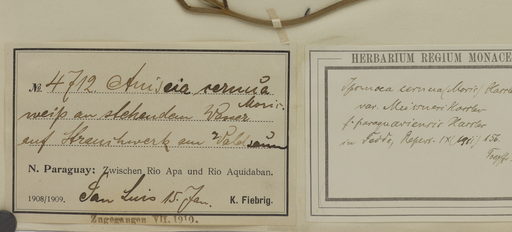 No. 4712. Aniseia cernua
Moric.
weiß an stehendem Wasser
auf Strauchwerk am Waldsaum
N. Paraguay; Zwischen Rio Apa und Rio Aquidaban.
1908/1909. San Luis 15. Jan. K. Fiebrig.
Zugegangen VII. 1910.
HERBARIUM REGIUM MONACE
Ipomoea cernua (Moric) Hassler
var. Meisneri Hassler
f. paraguariensis Hassler
in Fedde, Repert. IX (1911) 156.